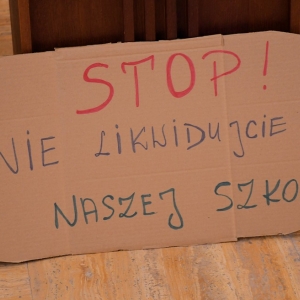 STOP!
NIE LIKWIDUJCIE
NASZEJ SZKO